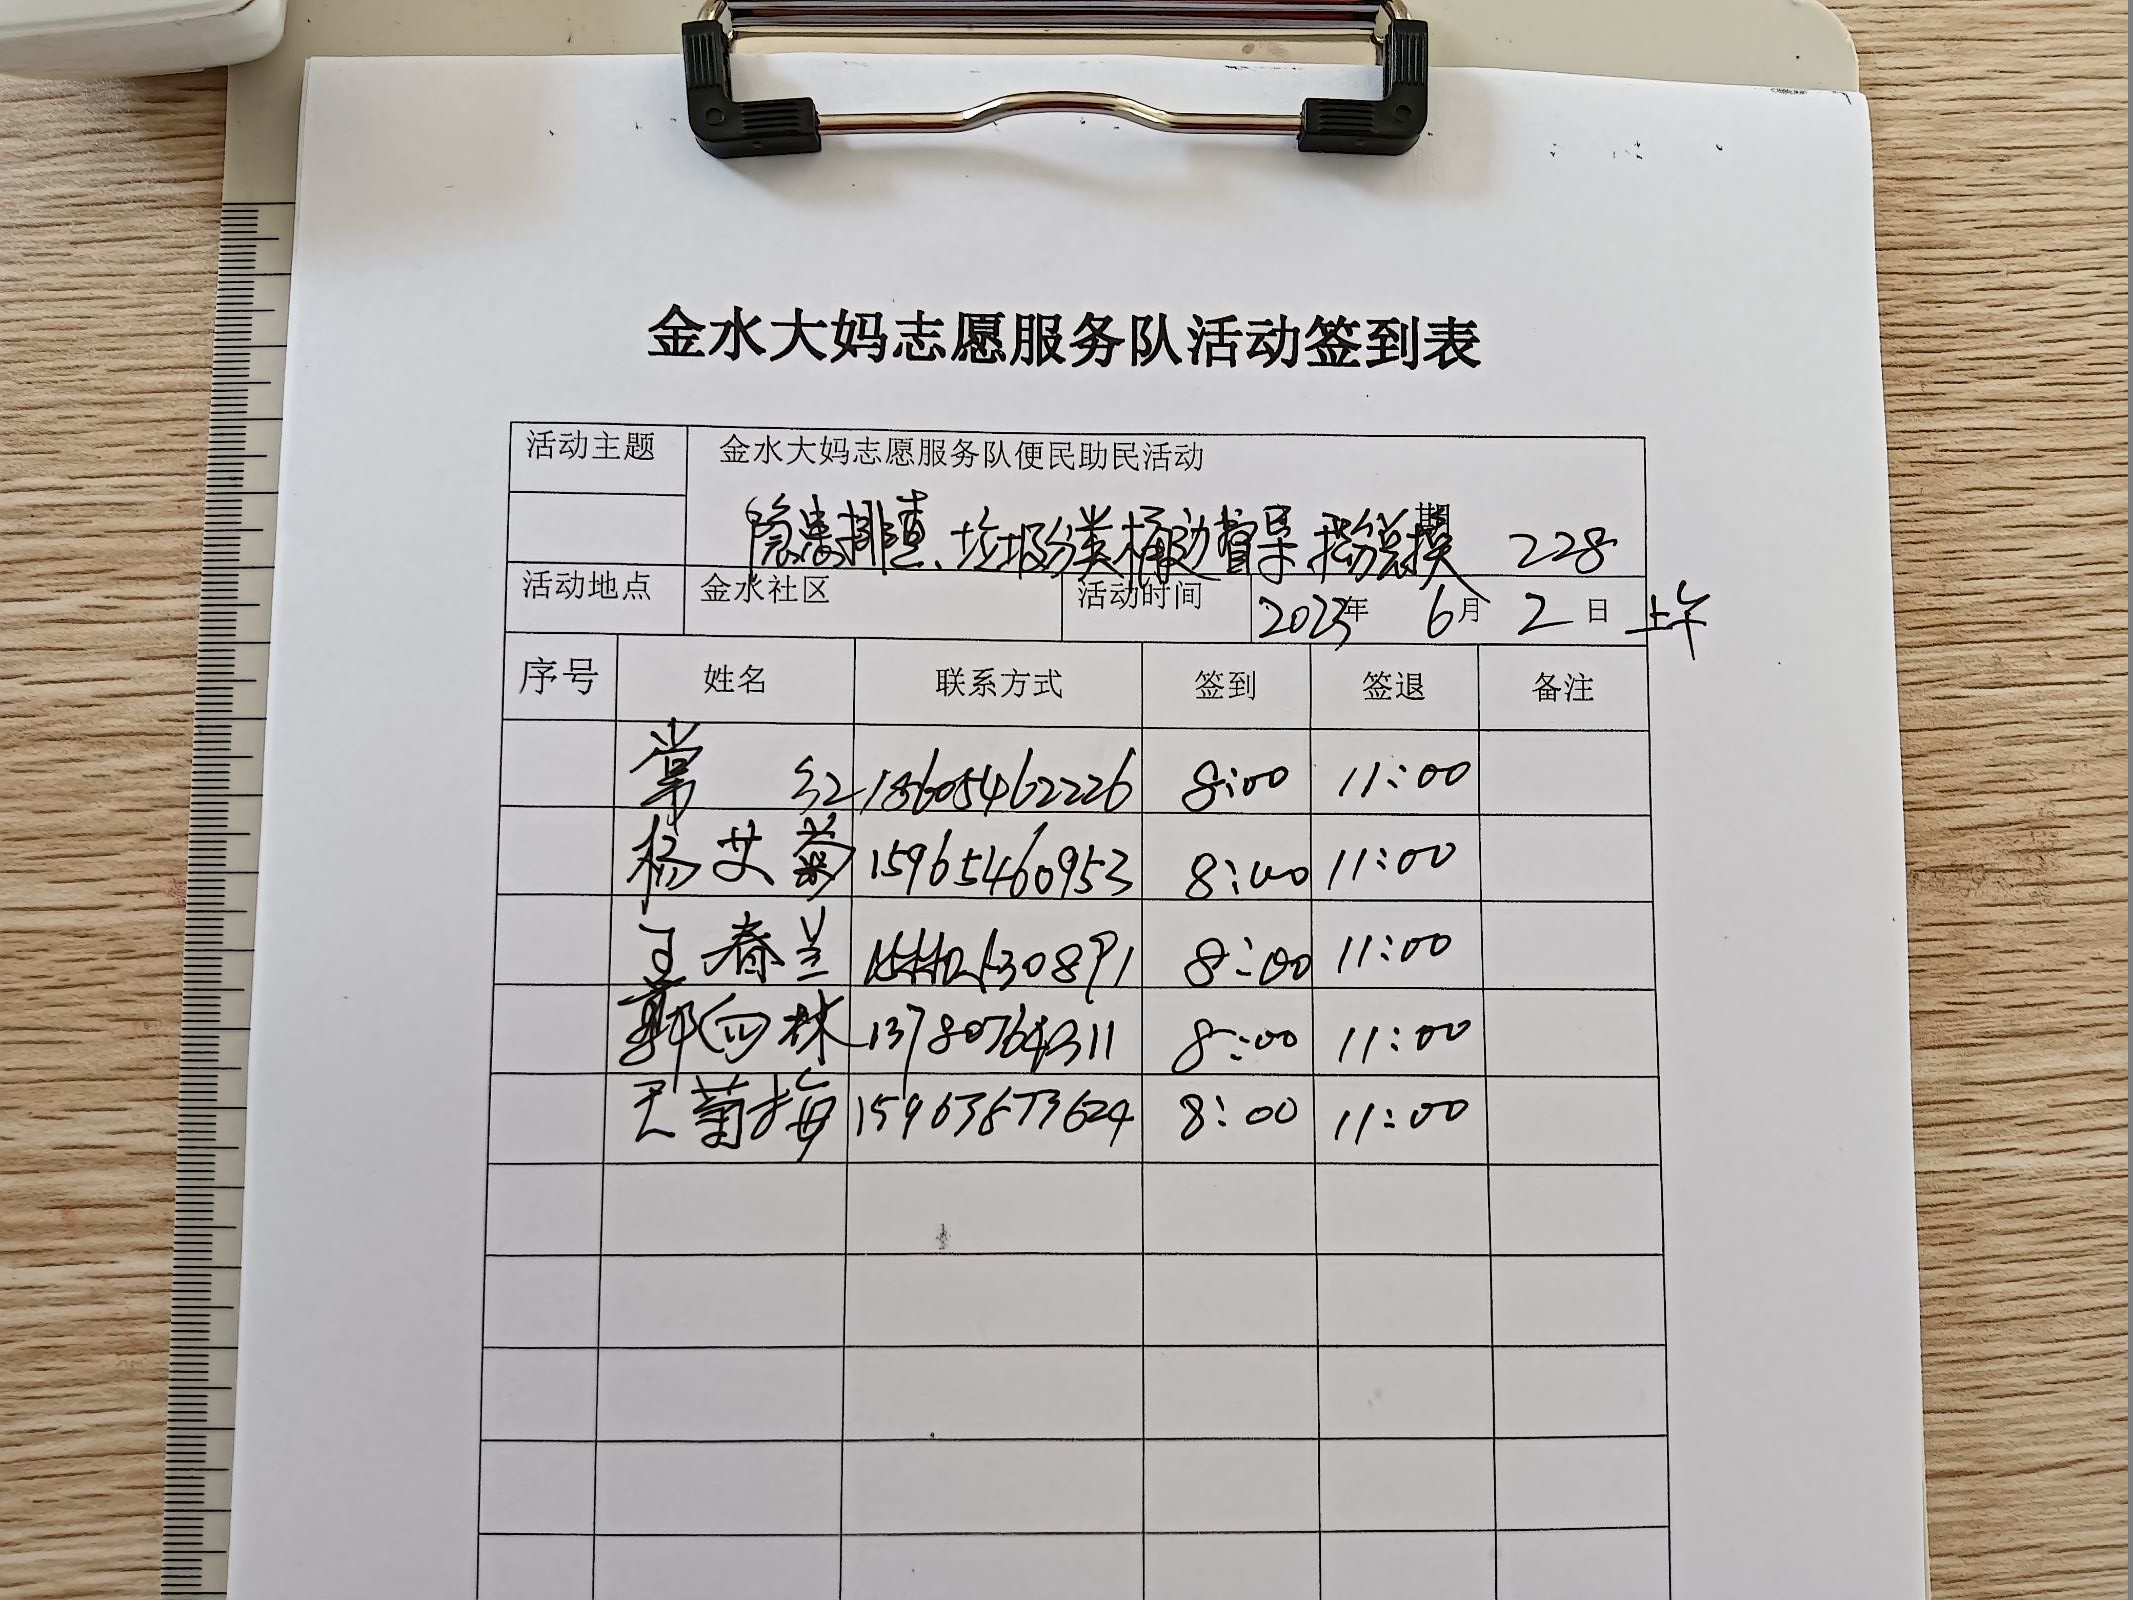 金水大妈志愿服务队活动签到表
活动主题 金水大妈志愿服务队便民助民活动
隐患排查、垃圾分类桶边督导 积分兑换 期 228
活动地点 金水社区 活动时间 2023年 6月 2日 上午
序号 姓名 联系方式 签到 签退 备注
常红 18605462226 8:00 11:00
杨艾菊 15965460953 8:00 11:00
王春兰 8:00 11:00
郭向林 13780764311 8:00 11:00
王菊梅 15963873624 8:00 11:00